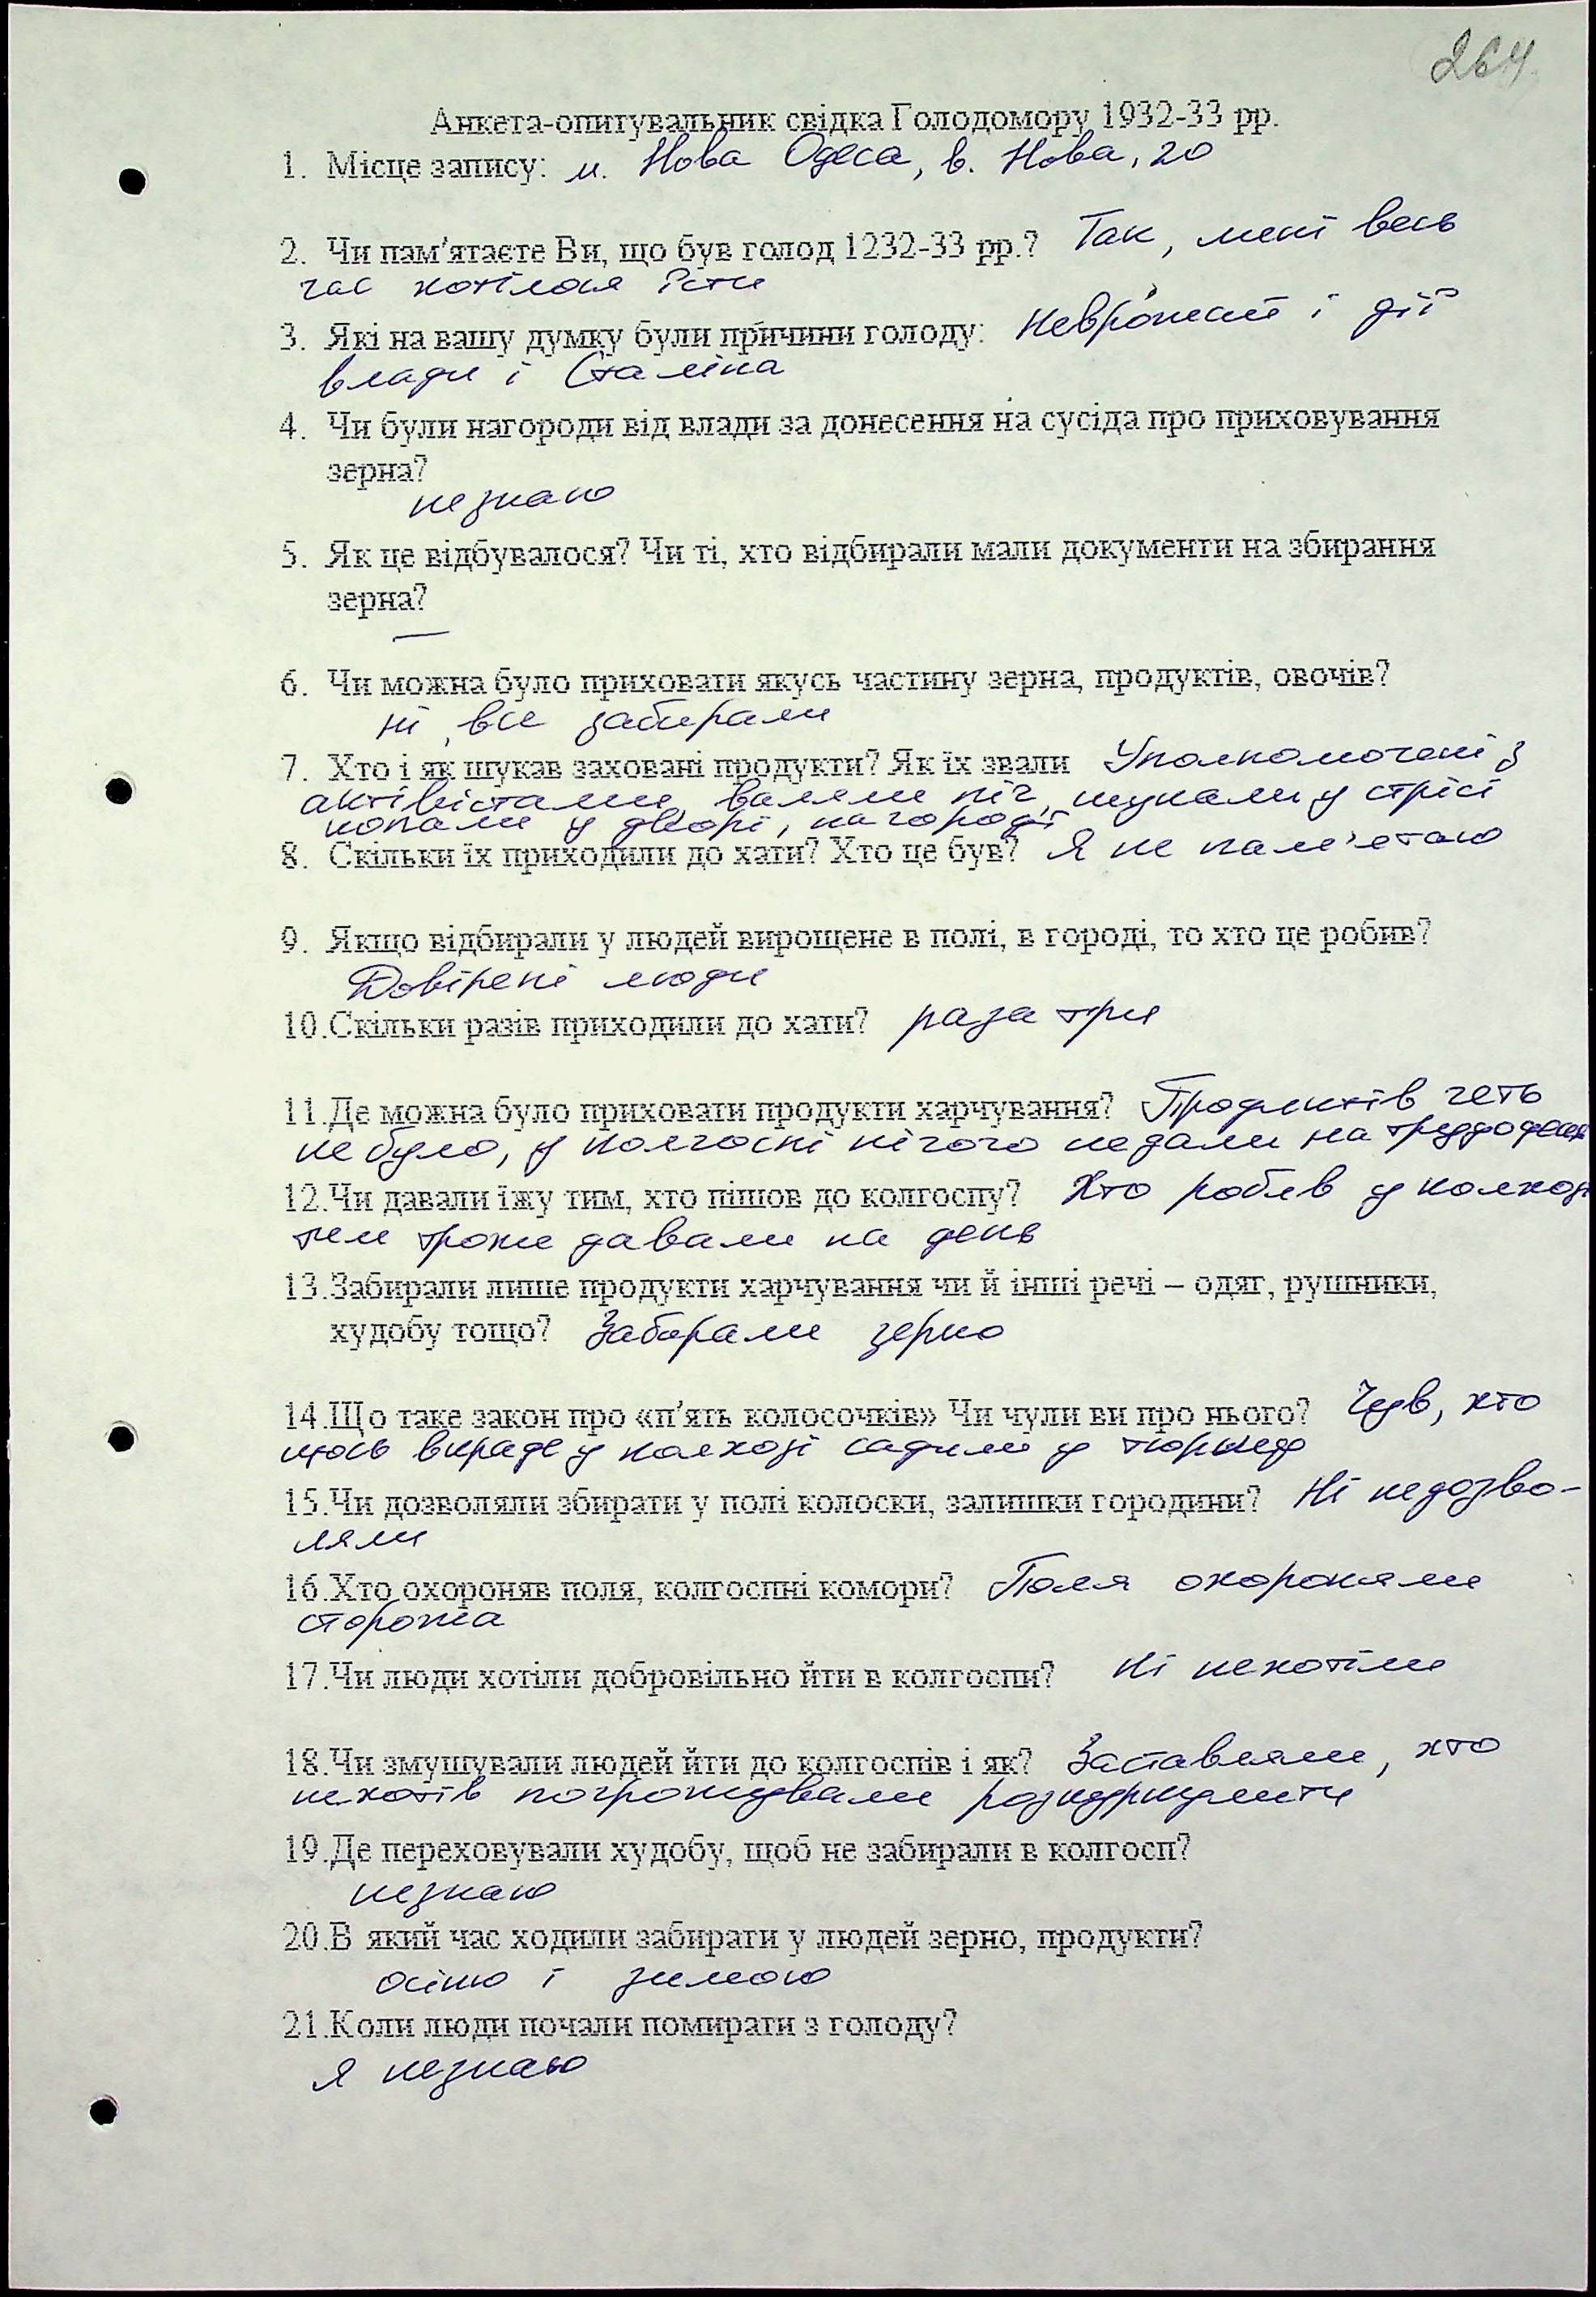 264
Анкета-опитувальник свідка Голодомору 1932-33 рр.
1. Місце запису: м. Нова Одеса, в. Нова, 20
2. Чи пам'ятаєте Ви, що був голод 1232-33 рр.? Так, мені весь
час хотілося їсти
3. Які на вашу думку були причини голоду: Неврожай і дії
влади і Сталіна
4. Чи були нагороди від влади за донесення на сусіда про приховування
зерна?
незнаю
5. Як це відбувалося? Чи ті, хто відбирали мали документи на збирання
зерна?
—
6. Чи можна було приховати якусь частину зерна, продуктів, овочів?
ні, все забирали
7. Хто і як шукав заховані продукти? Як їх звали Уполномочені з
актівістами, валяли піч, шукали у стрісі
копали у дворі, на городі
8. Скільки їх приходили до хати? Хто це був? Я не пам'етаю
9. Якщо відбирали у людей вирощене в полі, в городі, то хто це робив?
Довірені люди
10.Скільки разів приходили до хати? раза три
11.Де можна було приховати продукти харчування? Продуктів геть
не було, у колгоспі нічого недали на трудодень
12.Чи давали їжу тим, хто пішов до колгоспу? Хто робив у колхозі
тим трохи давали на день
13.Забирали лише продукти харчування чи й інші речі – одяг, рушники,
худобу тощо? Забирали зерно
14.Що таке закон про «п'ять колосочків» Чи чули ви про нього? Чув, хто
щось вкраде у колхозі садили у тюрму
15.Чи дозволяли збирати у полі колоски, залишки городини? Ні недозво-
ляли
16.Хто охороняв поля, колгоспні комори? Поля охороняли
сторожа
17.Чи люди хотіли добровільно йти в колгоспи? Ні нехотіли
18.Чи змушували людей йти до колгоспів і як? Заставляли, хто
нехотів погрожували розкуркулити
19.Де переховували худобу, щоб не забирали в колгосп?
незнаю
20.В який час ходили забирати у людей зерно, продукти?
осіню і зимою
21.Коли люди почали помирати з голоду?
я незнаю